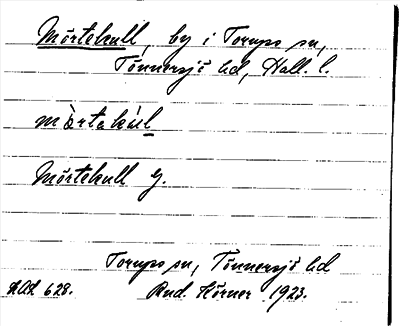 Mörtekull, by i Torups sn,
Tönnersjö hd, Hall. l.
mòrtəkúl
Mörtekull g.
Torups sn, Tönnersjö hd
AOA 628. Rud. Hörner 1923.